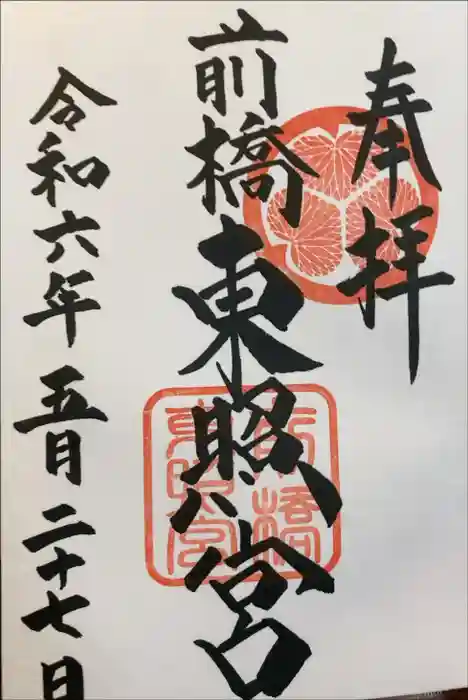 奉拝
前橋東照宮
前橋東照宮
令和六年五月二十七日